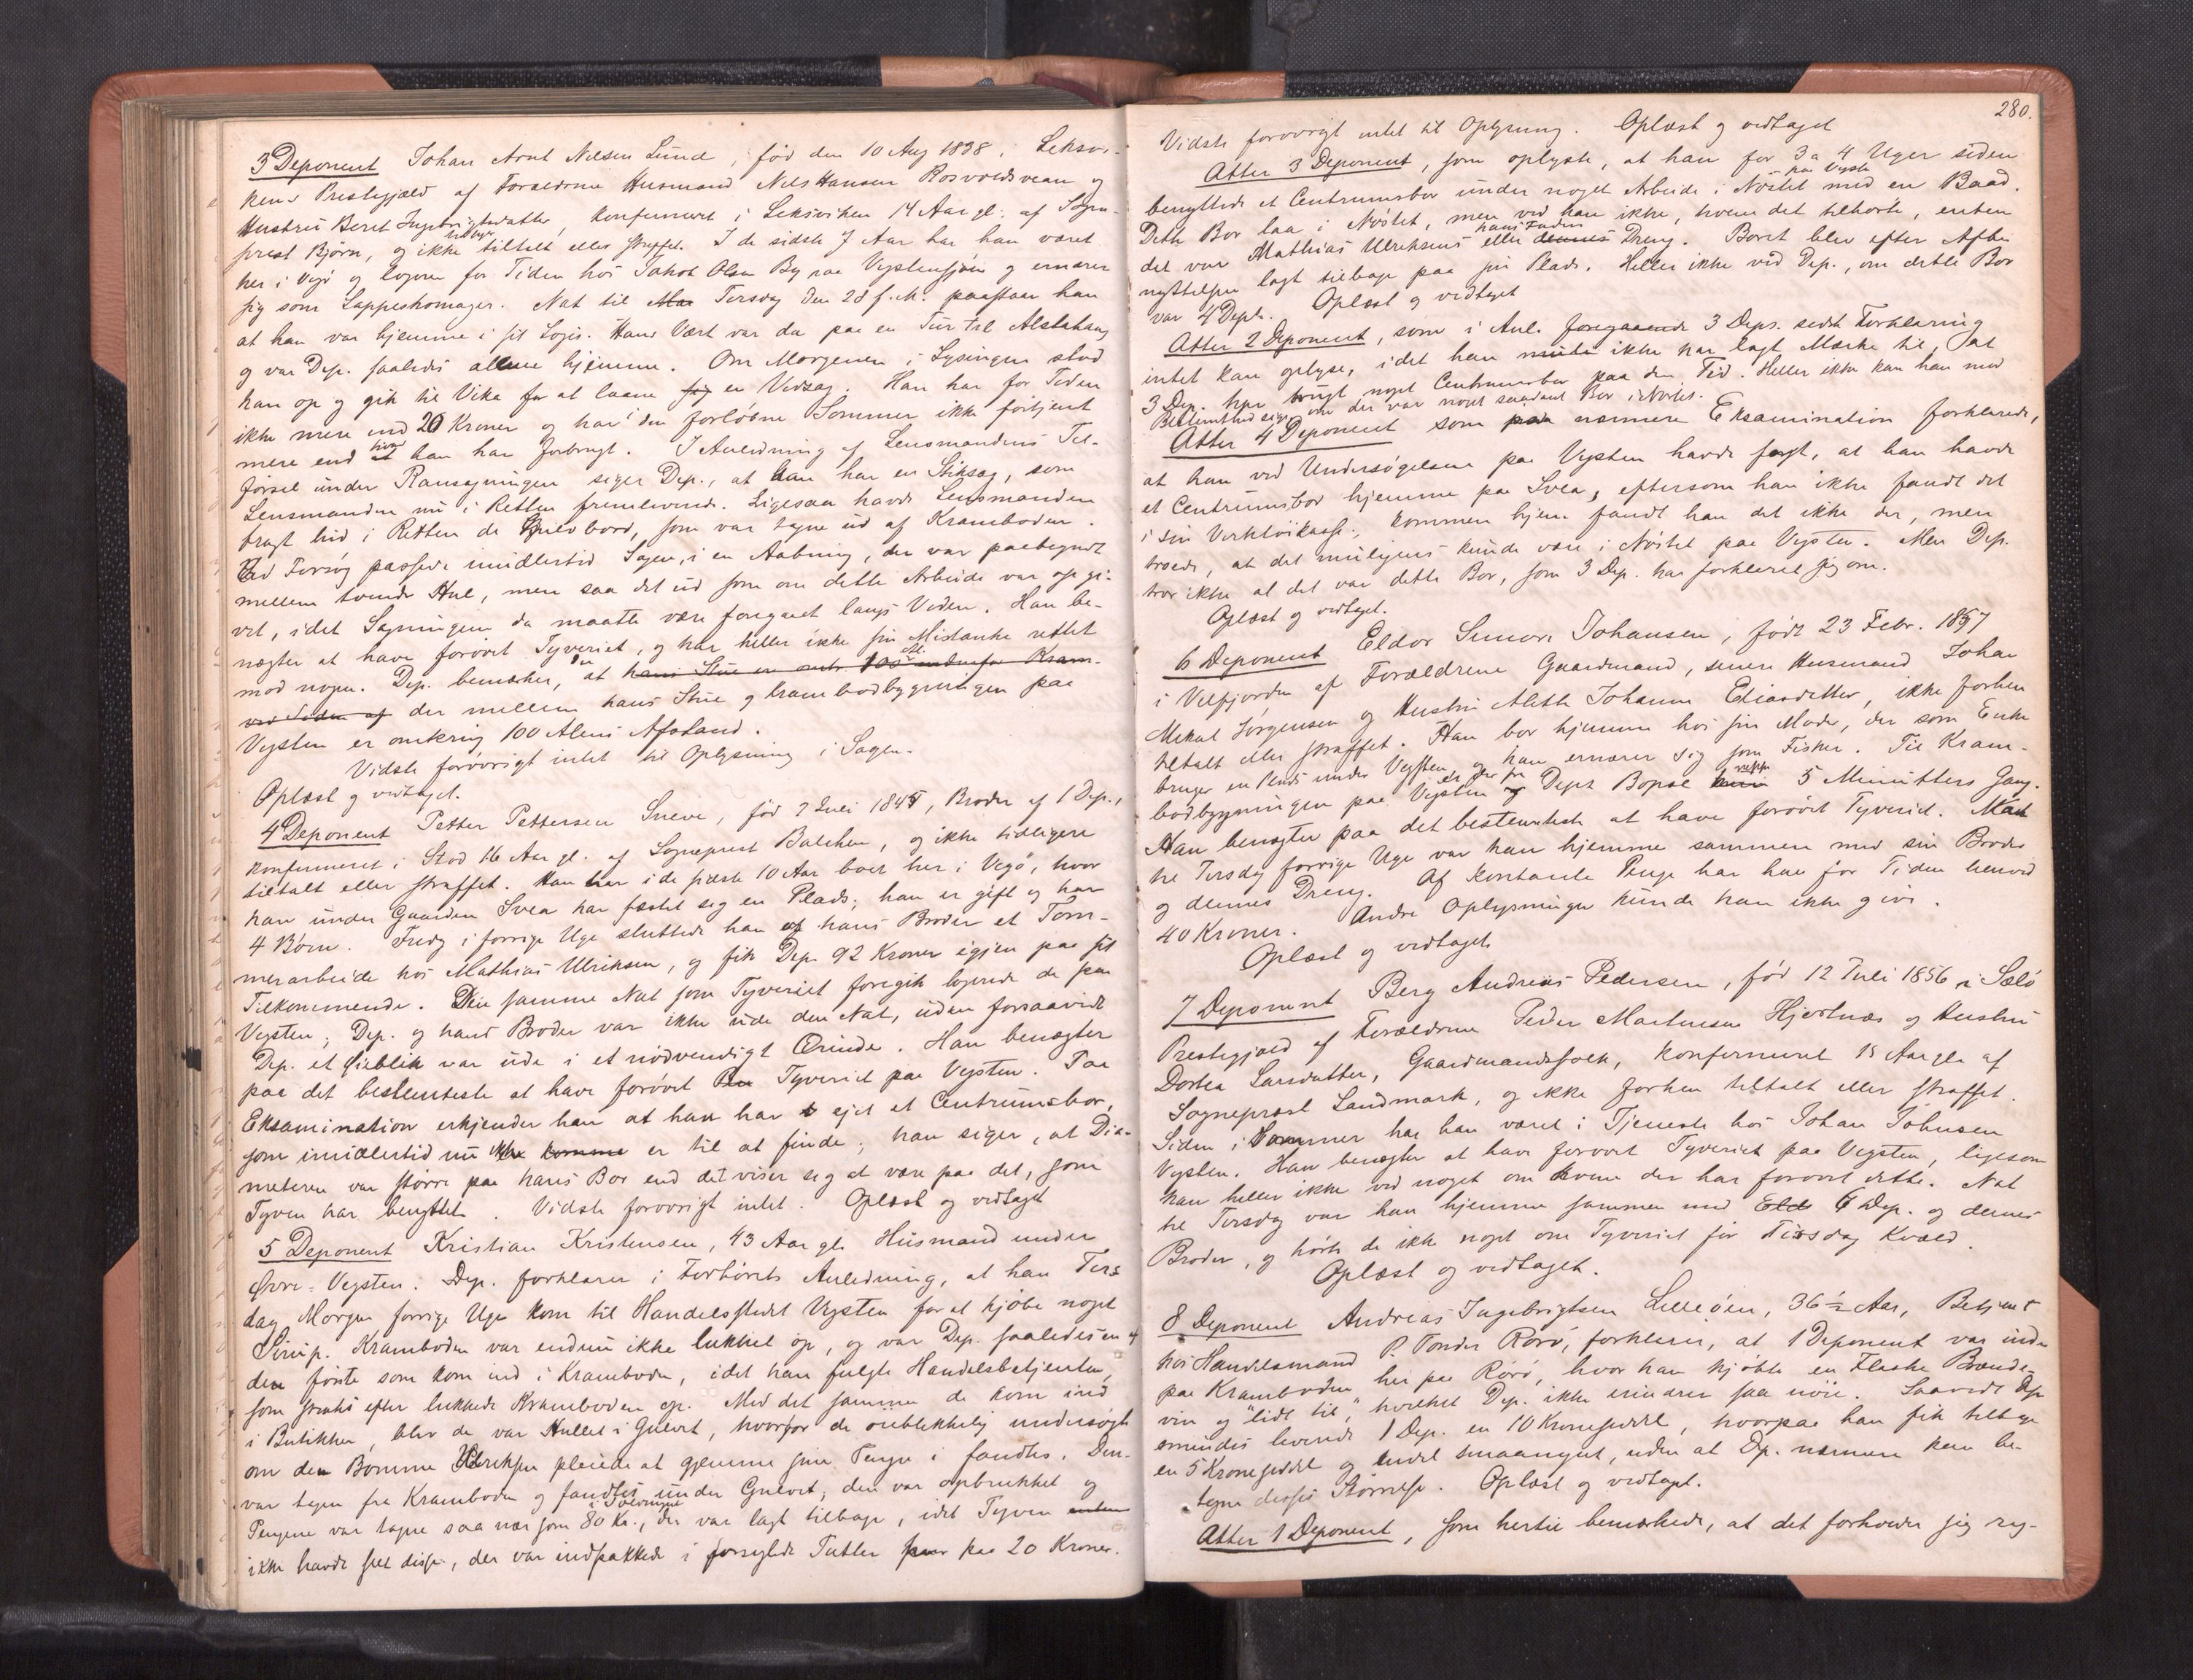 3 Deponent Johan Arnt Nilsen Lund, fød den 10 Aug 1838 i Leksvi-
kens Prestegjæld af Forældrene Husmand Nils Hansen Rosvoldsvean og
Hustru Beret Ingebrigtsdatter, konfirmeret i Leksviken 14 Aar gl. af Sogne-
prest Bjørn, og ikke tidligere tiltalt eller straffet. I de sidste 7 Aar har han været
her i Vegø og logerer for Tiden hos Jakob Olsen By paa Vegstensjøen og ernærer
sig som Lappeskomager. Nat til Tirsdag den 28 f. M. paastaar han
at han var hjemme i sit Logis. Hans Vært var da paa en Tur til Alstahaug
og var Dep. saaledes allene hjemme. Om Morgenen i Lysingen stod
han op og gik til Vika for at laane sig en Vedsag. Han har for Tiden
ikke mere end 20 Kroner og har i den forløbne Sommer ikke fortjent
mere end hvad han har forbrugt. I Anledning af Lensmandens Til-
førsel under Ransagningen siger Dep., at han har en Stiksag, som
Lensmanden nu i Retten fremleverede. Ligesaa havde Lensmanden
bragt hid i Retten de Gulvbord, som var tagne ud af Kramboden.
Ved Forsøg passede imidlertid Sagen, i en Aabning, der var paabegyndt
mellem tvende Hul, men saa det ud som om dette Arbeide var opgi-
vet, idet Sagningen da maatte være foregaaet langs Veden. Han be-
nægter at have forøvet Tyveriet, og har heller ikke sin Mistanke rettet
mod nogen. Dep. bemærker, at hans Stue er omtr. 100 Al. nedenfor Kram-
ved Siden af der mellem hans Stue og Krambodbygningen paa
Vegsten er omkring 100 Alens Afstand.
Vidste forøvrigt intet til Oplysning i Sagen.
Oplæst og vedtaget.
4 Deponent Petter Pettersen Sneve, fød 7 Juli 1845, Broder af 1 Dep.,
konfirmeret i Stod 16 Aar gl. af Sogneprest Balchen, og ikke tidligere
tiltalt eller straffet. Han har i de sidste 10 Aar boet her i Vegø, hvor
han under Gaarden Svea har fæstet sig en Plads; han er gift og har
4 Børn. Fredg i forrige Uge sluttede han og hans Broder et Tøm-
merarbeide hos Mathias Ulriksen, og fik Dep. 92 Kroner igjen paa sit
Tilkommende. Den samme Nat som Tyveriet foregik logerede de paa
Vegsten; Dep. og hans Broder var ikke ude den Nat, uden forsaavidt
Dep. et Øieblik var ude i et nødvendigt Ærinde. Han benægter
paa det bestemteste at have forøvet Tyveriet paa Vegsten. Paa
Eksamination erkjender han at han har ejet et Centrumsbor,
som imidlertid nu ikke komme er til at finde; han siger, at Dia-
meteren var større paa hans Bor end det viser sig at være paa det, som
Tyven har benyttet. Vidste forøvrigt intet. Oplæst og vedtaget
5 Deponent Kristian Kristensen, 43 Aar gl. Husmand under
Øvre-Vegsten. Dep. forklarer i Forhørets Anledning, at han Tirs
dag Morgen forrige Uge kom til Handelsstedet Vegsten for at kjøbe noget
Sirup. Kramboden var endnu ikke lukket op, og var Dep. saaledes en af
den første som kom ind i Kramboden, idet han fulgte Handelsbetjenten,
som straks efter lukkede Kramboden op. Med det samme de kom ind
i Butikken, blev de var Hullet i Gulvet, hvorfor de øieblikkelig undersøgte
om den Bomme Ulriksen pleiede at gjemme sine Penge i fandtes. Den
var tagen fra Kramboden og fandtes under Gulvet, den var opbrukket og
Pengene var tagne saa nær som 80 Kr., der var lagt tilbage, idet Tyven enten
ikke havde seet disse, der var indpakkede i forseglede Tutter paa 20 Kroner.
280.
Vidste forøvrigt intet til Oplysning. Oplæst og vedtaget
Atter 3 Deponent, som oplyste, at han for 3 a 4 Uger siden
benyttede et Centrumsbor under noget Arbeide i Nøstet paa Vegsten med en Baad.
Dette Bor laa i Nøstet, men ved han ikke, hvem det tilhørte, enten
det var Mathias Ulriksens eller hans Faders dennes Dreng. Boret blev efter Afbe
nyttelsen lagt tilbage paa sin Plads. Heller ikke ved Dep., om dette Bor
var 4 Depts. Oplæst og vedtaget
Atter 2 Deponent, som i Anl. foregaaende 3 Deps. sidste Forklaring
intet kan oplyse, idet han ikke har lagt Mærke til, at
3 Dep. har brugt noget Centrumsbor paa den Tid. Heller ikke kan han med
Bestemthed sige om der var noget saadant Bor i Nøstet.
Atter 4 Deponent som paa nærmere Eksamination forklarede,
at han ved Undersøgelsene paa Vegsten havde sagt, at han havde
et Centrumsbor hjemme paa Svea, eftersom han ikke fandt det
i sin Verktøikasse; kommen hjem fandt han det ikke der, men
troede, at det muligens kunde være i Nøstet paa Vegsten. Men Dep.
tror ikke at det var dette Bor, som 3 Dep. har forklaret sig om.
Oplæst og vedtaget.
6 Deponent Eldor Simore Johansen, født 23 Febr. 1857
i Velfjorden af Forældrene Gaardmand, senere Husmand Johan
Mikal Jørgensen og Hustru Aleth Johanna Eliasdatter, ikke forhen
tiltalt eller straffet. Han bor hjemme hos sin Moder, der som Enke
bruger en Plads under Vegsten, og han ernærer sig som Fisker. Til Kram-
bodbygningen paa Vegsten er der fra Depts Bopæl knap 5 Minutters Gang.
Han benægter paa det bestemteste at have forøvet Tyveriet. Nat
til Tirsdag forrige Uge var han hjemme sammen med sin Broder
og dennes Dreng. Af kontante Penge har han for Tiden henved
40 Kroner. Andre Oplysninger kunde han ikke give.
Oplæst og vedtaget
7 Deponent Berg Andreas Pedersen, fød 12 Juli 1856 i Sælø
Prestegjæld af Forældrene Peder Martinsen Hjertnæs og Hustru
Dortea Larsdatter, Gaardmandsfolk, konfirmeret 15 Aar gl. af
Sogneprest Landmark, og ikke forhen tiltalt eller straffet.
Siden i Sommer har han været i Tjeneste hos Johan Johnsen
Vegsten. Han benægter at have forøvet Tyveriet paa Vegsten, ligesom
han heller ikke ved noget om hvem der har forøvet dette. Nat
til Tirsdag var han hjemme sammen med 6 Dep. og dennes
Broder, og hørte de ikke noget om Tyveriet før Tirsdag Kvæld.
Oplæst og vedtaget.
8 Deponent Andreas Ingebrigtsen Lilleøen, 36½ Aar, Betjent
hos Handelsmand P. Tonder Rørø, forklarer, at 1 Deponent var inde
paa Kramboden her paa Rørø, hvor han kjøbte en Flaske Brænde-
vin og "lidt til", hvilket Dep. ikke erindrer saa nøie. Saavidt Dep
erindres leverede 1 Dep. en 10 Kroneseddel, hvorpaa han fik tilbage
en 5 Kroneseddel og endel smaamynt, uden at Dp. nærmere kan be-
tegne disses Størrelse. Oplæst og vedtaget.
Atter 1 Deponent, som hertil bemærkede, at det forholder sig rig-